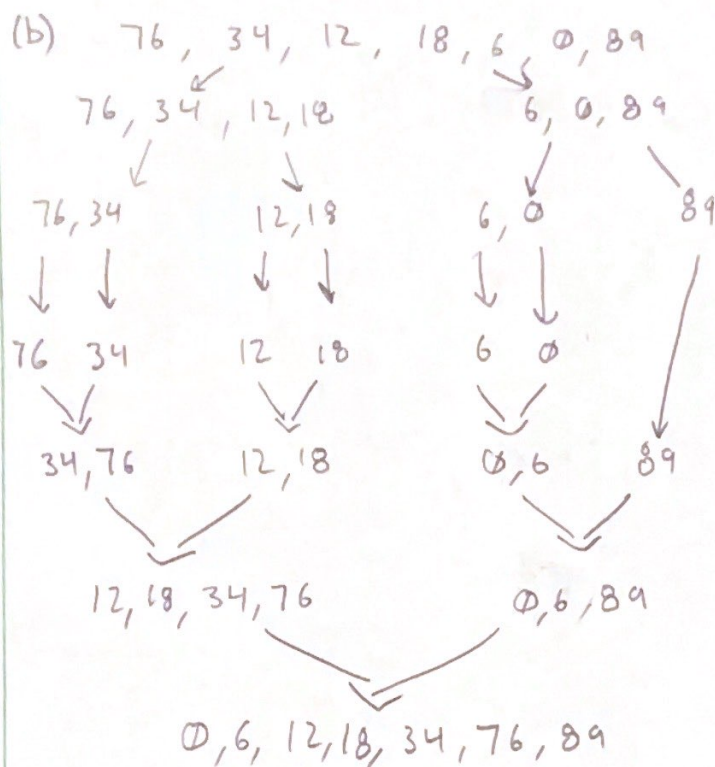 (b) 76, 34, 12, 18, 6, 0, 89
76, 34, 12, 18 6, 0, 89
76, 34 12, 18 6, 0 89
76 34 12 18 6 0
34, 76 12, 18 0, 6 89
12, 18, 34, 76 0, 6, 89
0, 6, 12, 18, 34, 76, 89